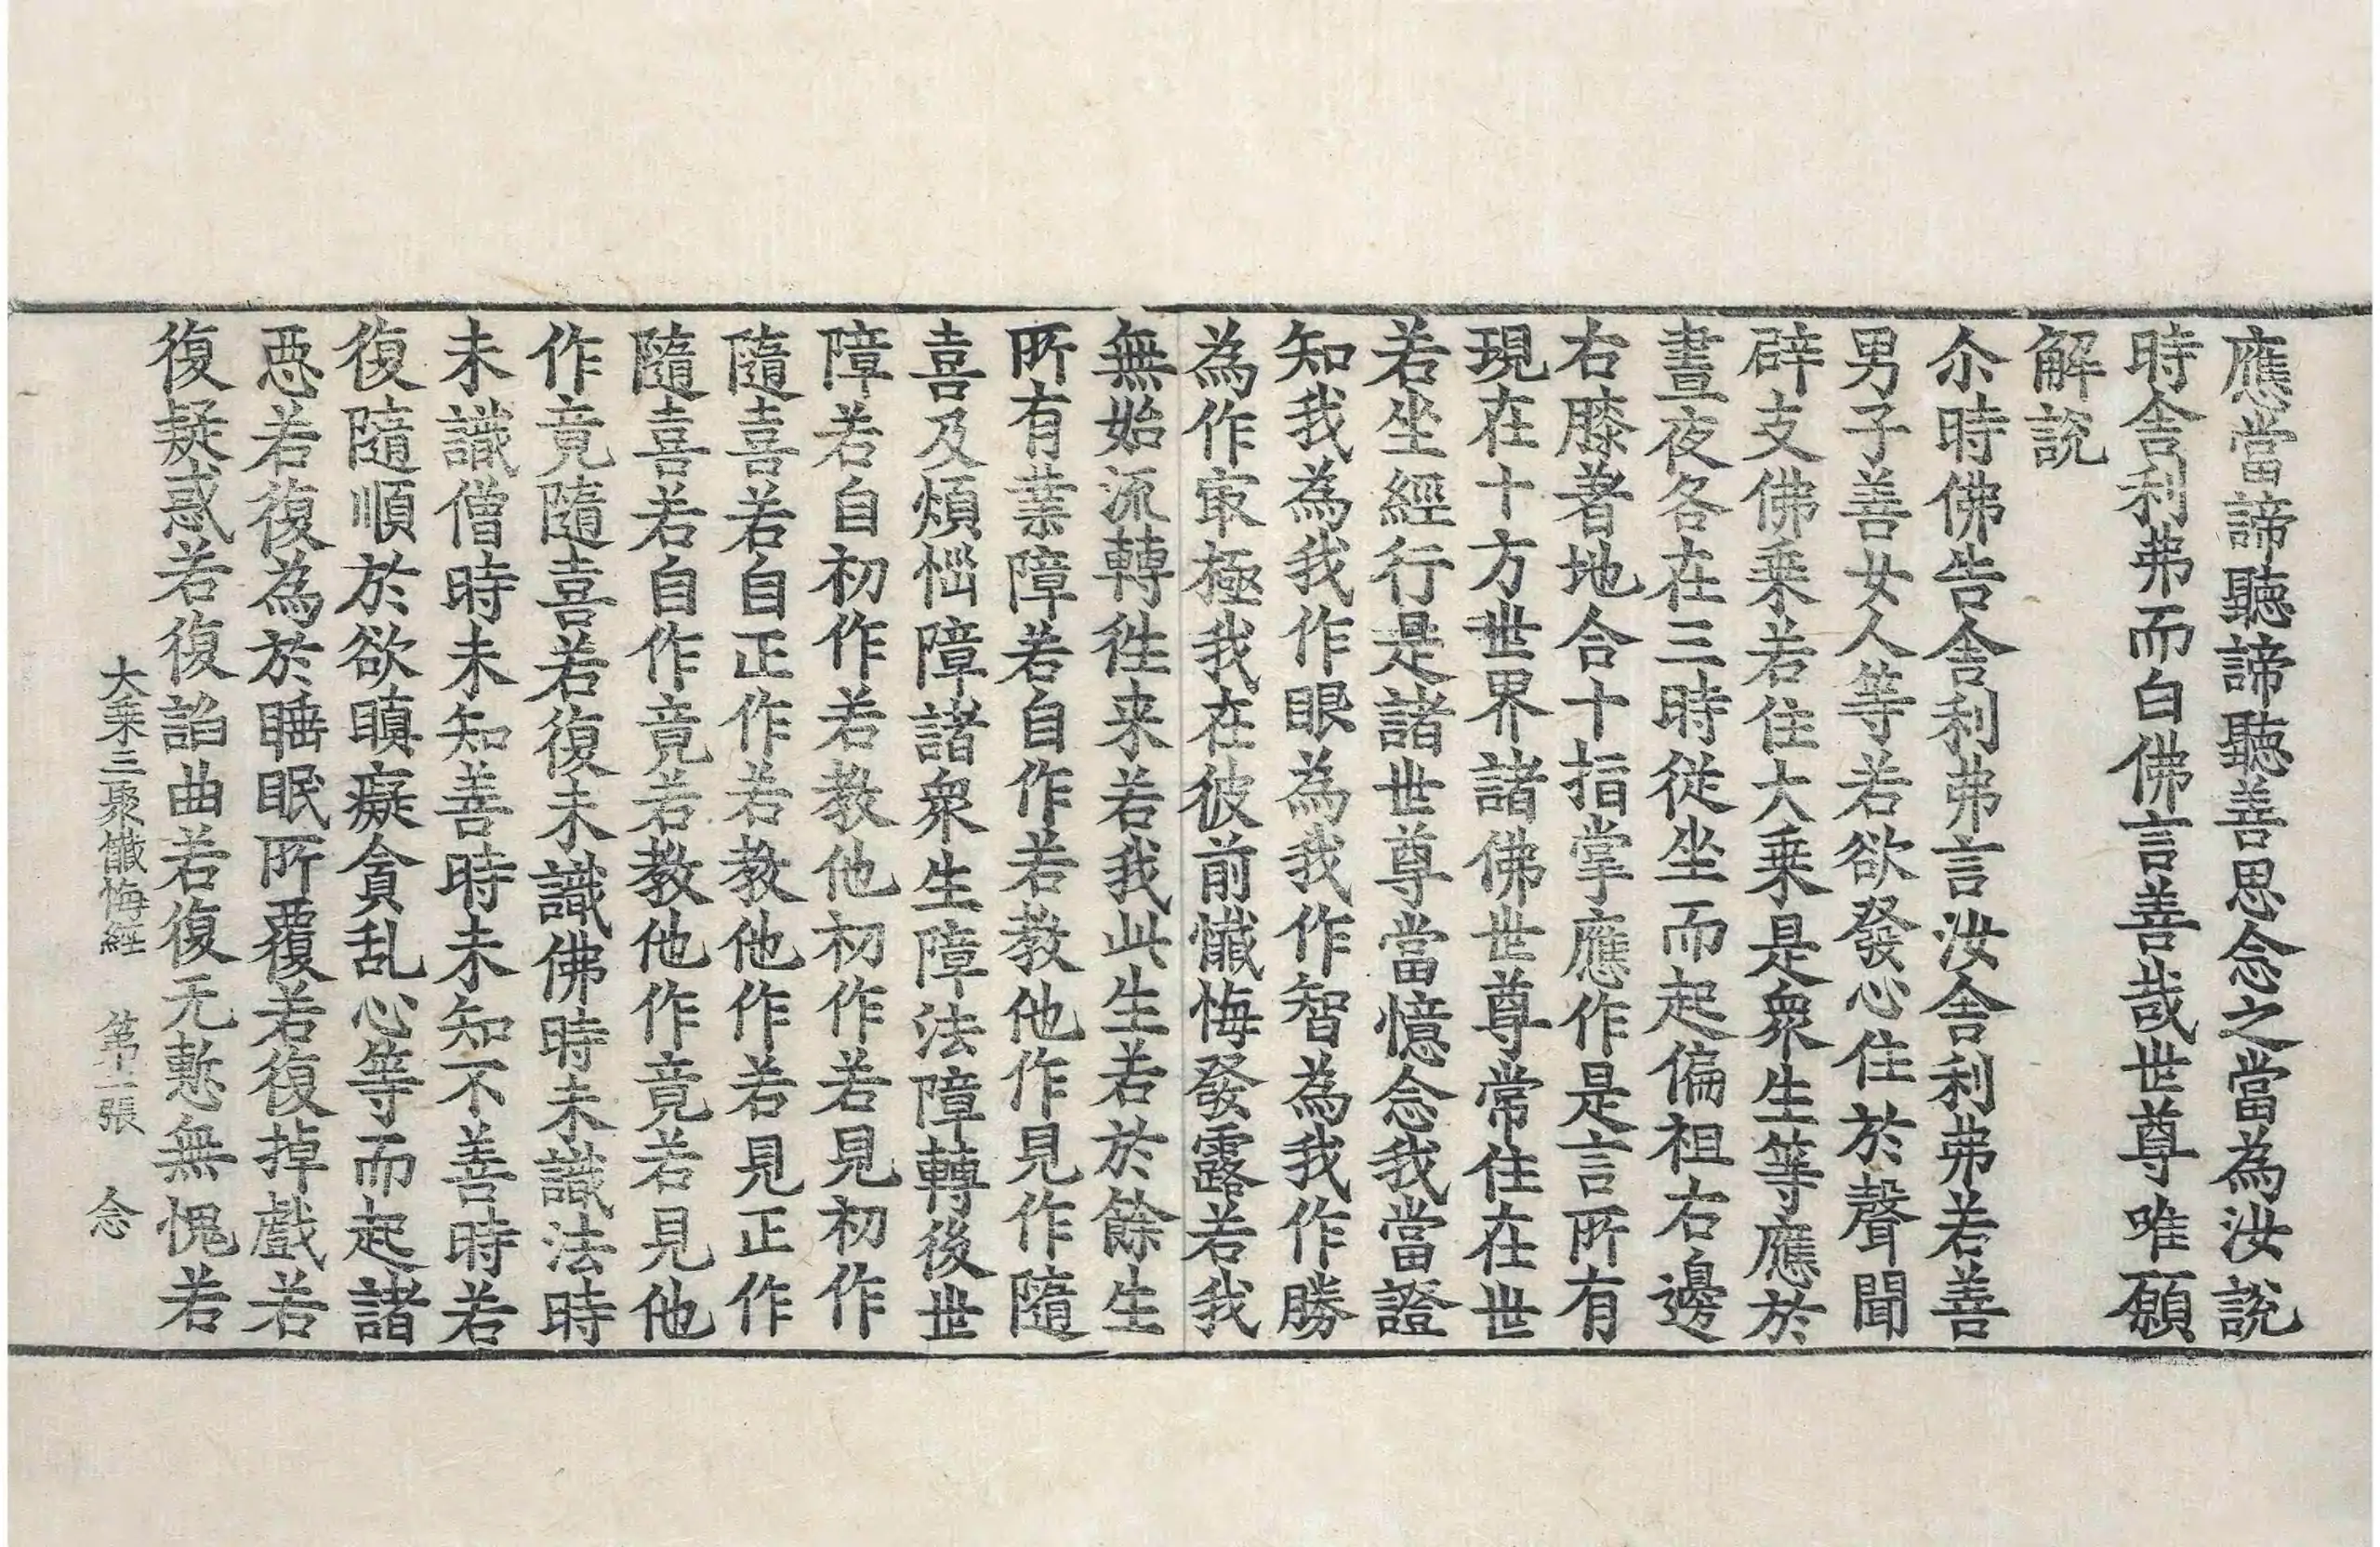 應當諦聽諦聽善思念之當為汝說
時舍利弗而白佛言善哉世尊唯願
解說
尒時佛告舍利弗言汝舍利弗若善
男子善女人等若欲發心住於聲聞
辟支佛乗若住大乗是衆生等應於
晝夜各在三時從坐而起偏袒右邊
右膝著地合十指掌應作是言所有
現在十方世界諸佛世尊常住在世
若坐經行是諸世尊當憶念我當證
知我為我作眼為我作智為我作勝
為作㝡極我在彼前懴悔發露若我
無始流轉徃来若我此生若於餘生
所有業障若自作若教他作見作隨
喜及煩惱障諸衆生障法障轉後世
障若自初作若教他初作若見初作
隨喜若自正作若教他作若見正作
隨喜若自作竟若教他作竟若見他
作竟隨喜若復未識佛時未識法時
未識僧時未知善時未知不善時若
復隨順於欲瞋癡貪乱心等而起諸
惡若復為於睡眠所覆若復掉戲若
復疑惑若復諂曲若復无慙無愧若
大乗三聚懴悔經 第二張 念